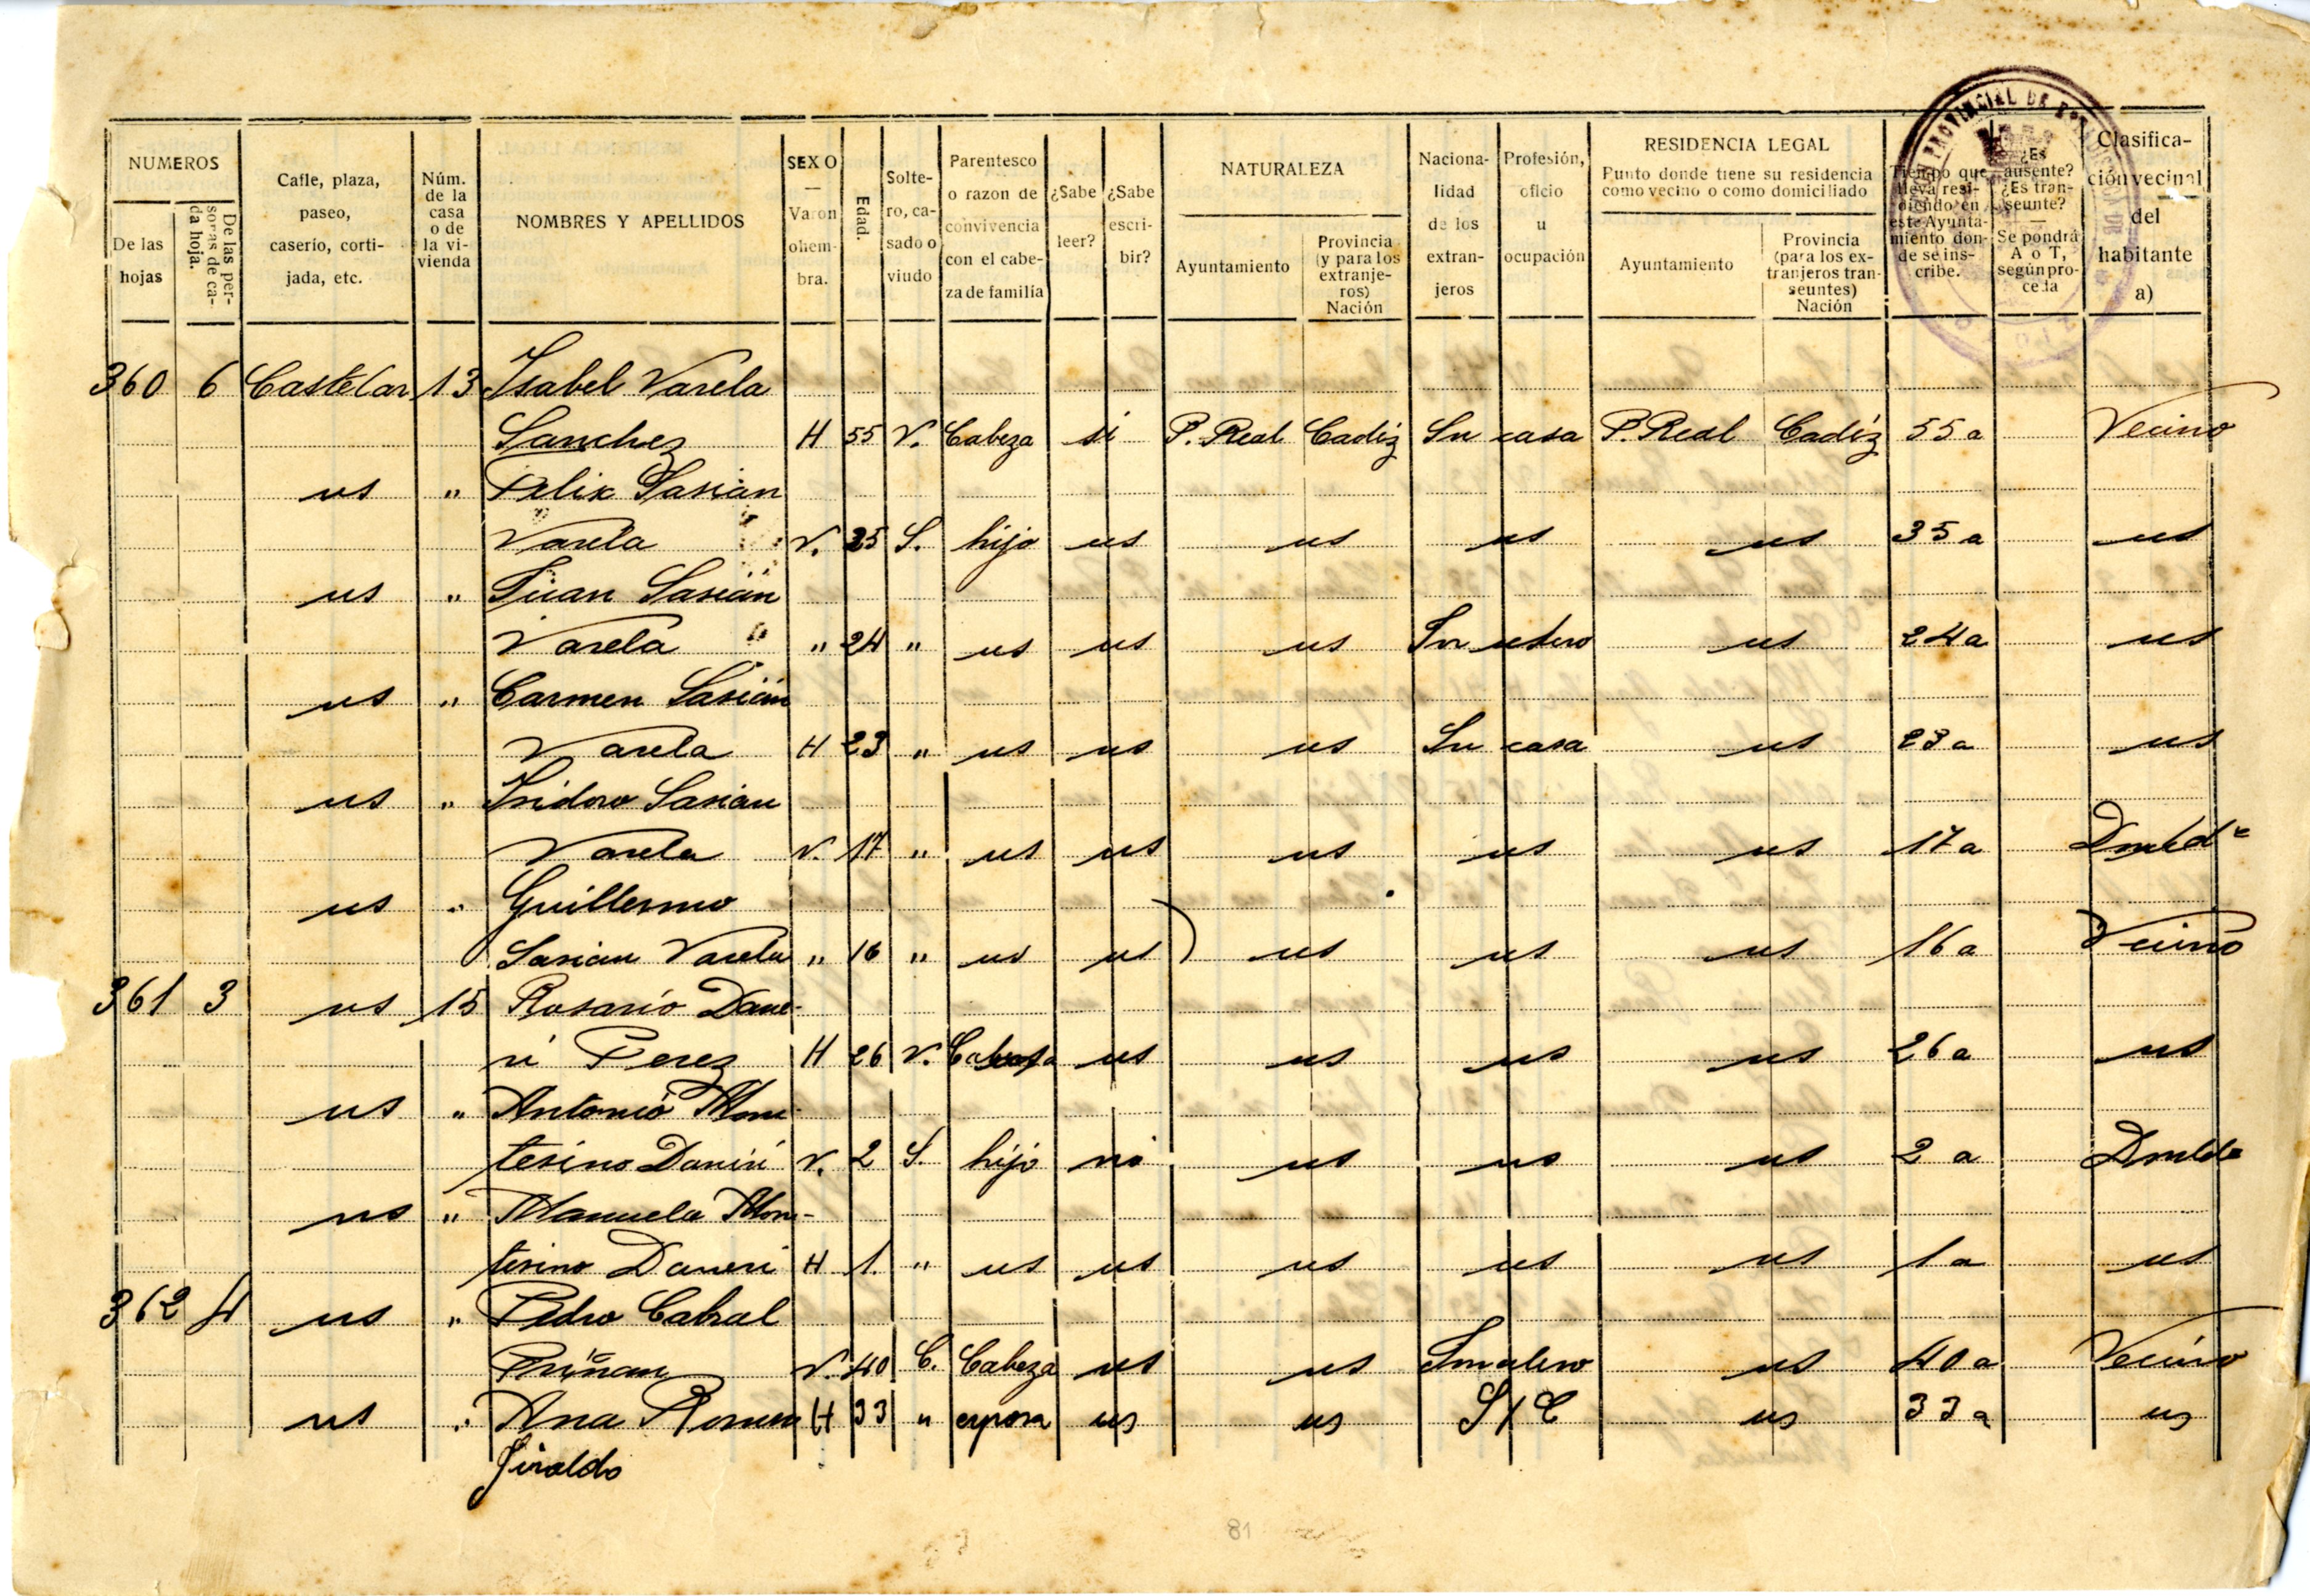 NUMEROS
De las hojas
De las personas de cada hoja.
Calle, plaza, paseo, caserio, cortijada, etc.
Núm. de la casa o de la vivienda
NOMBRES Y APELLIDOS
SEXO — Varon o hembra.
Edad.
Soltero, casado o viudo
Parentesco o razon de convivencia con el cabeza de familia
¿Sabe leer?
¿Sabe escribir?
NATURALEZA
Ayuntamiento
Provincia (y para los extranjeros) Nación
Nacionalidad de los extranjeros
Profesión, oficio u ocupación
RESIDENCIA LEGAL
Punto donde tiene su residencia como vecino o como domiciliado
Ayuntamiento
Provincia (para los extranjeros transeuntes) Nación
Tiempo que lleva residiendo en este Ayuntamiento donde se inscribe.
¿Es ausente? ¿Es transeunte? — Se pondrá A o T, según proceda
Clasificación vecinal del habitante a)
360 6 Castelar 13 Isabel Varela
Sanchez H 55 V. Cabeza si P. Real Cadiz Su casa P. Real Cadiz 55 a Vecino
us " Felix Sasian
Varela V. 25 S. hijo us us us us 35 a us
us " Juan Sasian
Varela " 24 " us us us us 24 a us
us " Carmen Sasian
Varela H 23 " us us us Su casa us 23 a us
us " Isidoro Sasian
Varela V. 17 " us us us us us 17 a
us " Guillermo
Sasian Varela " 16 " us us us us us 16 a Vecino
361 3 us 15 Rosario Dane-
ri Perez H 26 V. Cabeza us us us us 26 a us
us " Antonio Mon-
tesino Daneri V. 2 S. hijo no us us us 2 a
us " Manuela Mon-
tesino Daneri H 1. " us us us us us 1 a us
362 4 us " Pedro Cabral
Priñan V. 40 C. Cabeza us us us 40 a Vecino
us " Ana Romero H 33 " esposa us us S/C us 33 a us
Jiraldo
81